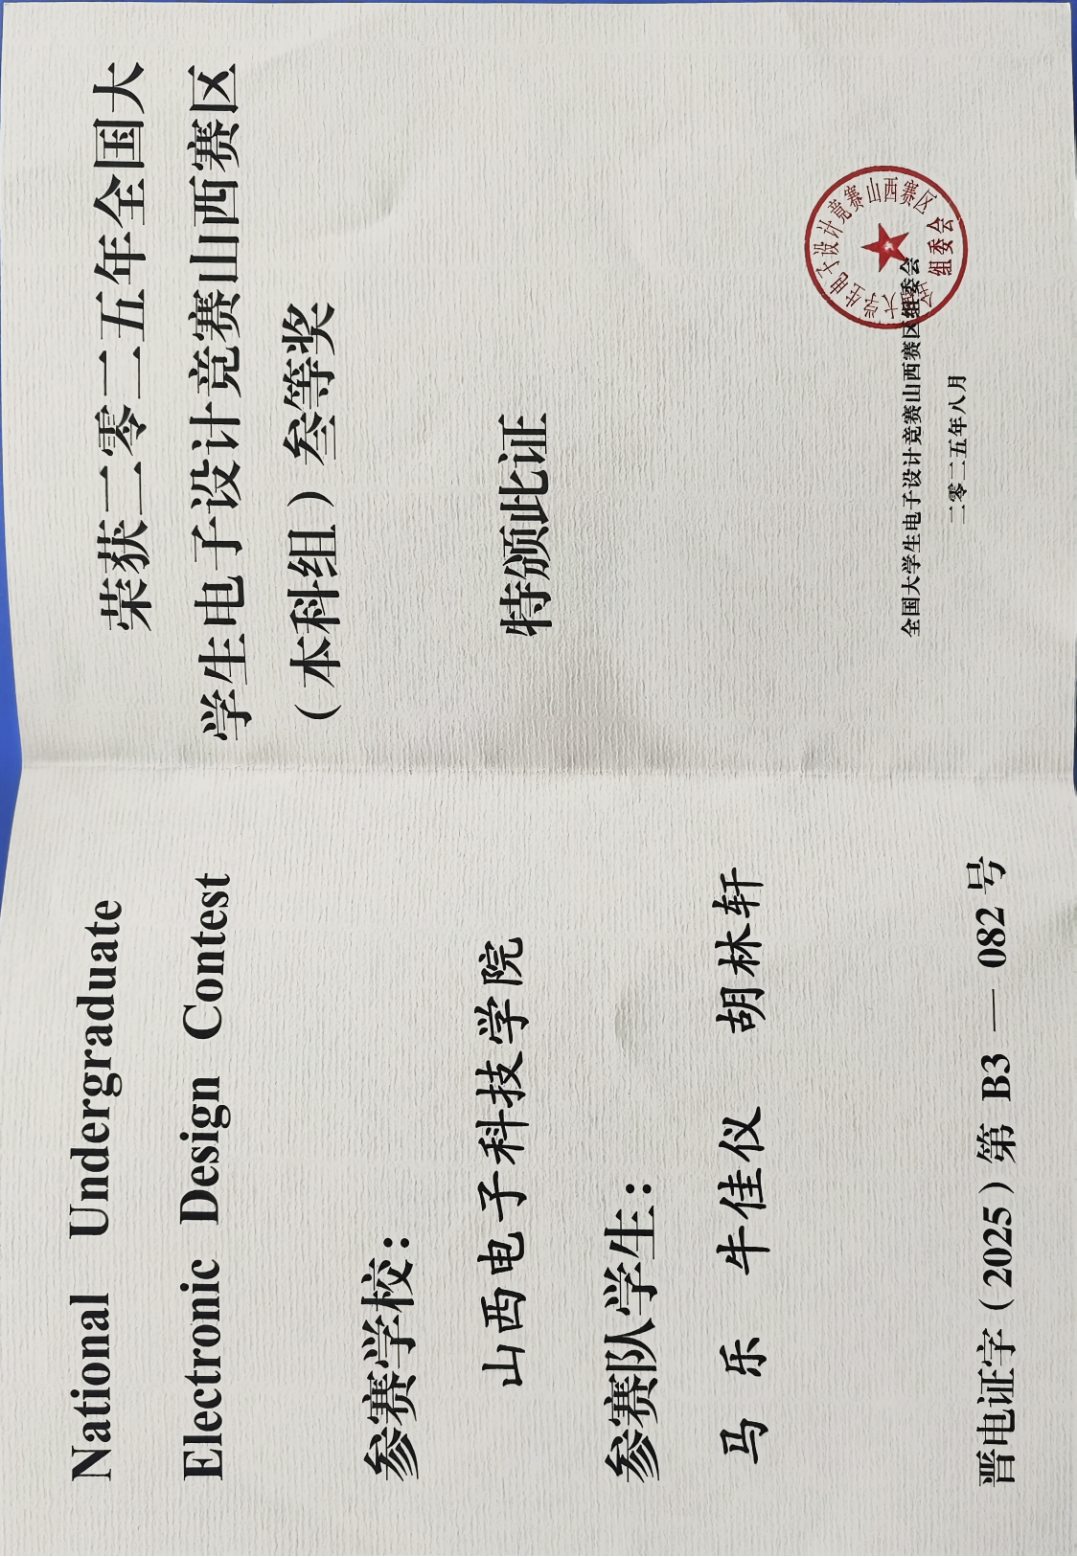 National Undergraduate
Electronic Design Contest
参赛学校：
山西电子科技学院
参赛队学生：
马 乐 牛佳仪 胡林轩
晋电证字（2025）第 B3 — 082 号
荣获二零二五年全国大
学生电子设计竞赛山西赛区
（本科组）叁等奖
特颁此证
全国大学生电子设计竞赛山西赛区组委会
二零二五年八月
全国大学生电子设计竞赛山西赛区
组委会